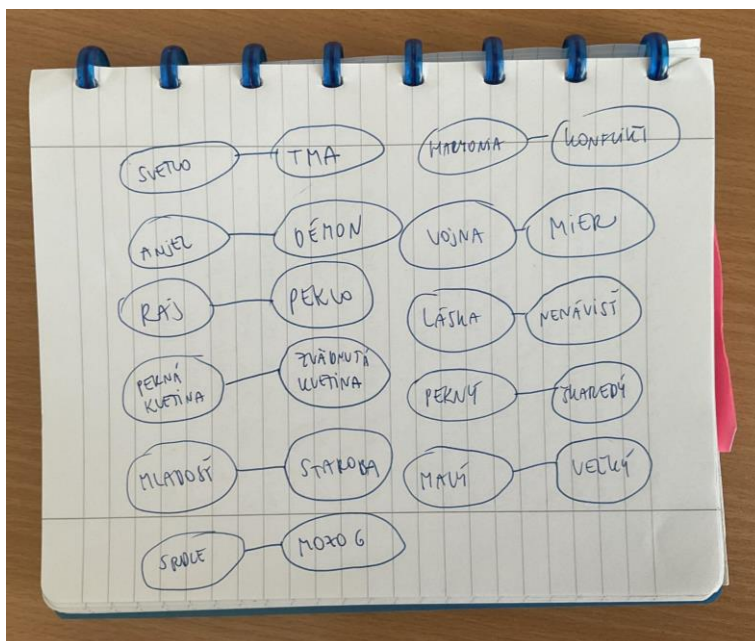 SVETLO
TMA
ANJEL
DÉMON
RAJ
PEKLO
PEKNÁ
KVETINA
ZVÄDNUTÁ
KVETINA
MLADOSŤ
STAROBA
SRDCE
MOZOG
HARMONIA
KONFLIKT
VOJNA
MIER
LÁSKA
NENÁVISŤ
PEKNÝ
SKAREDÝ
MALÝ
VEĽKÝ